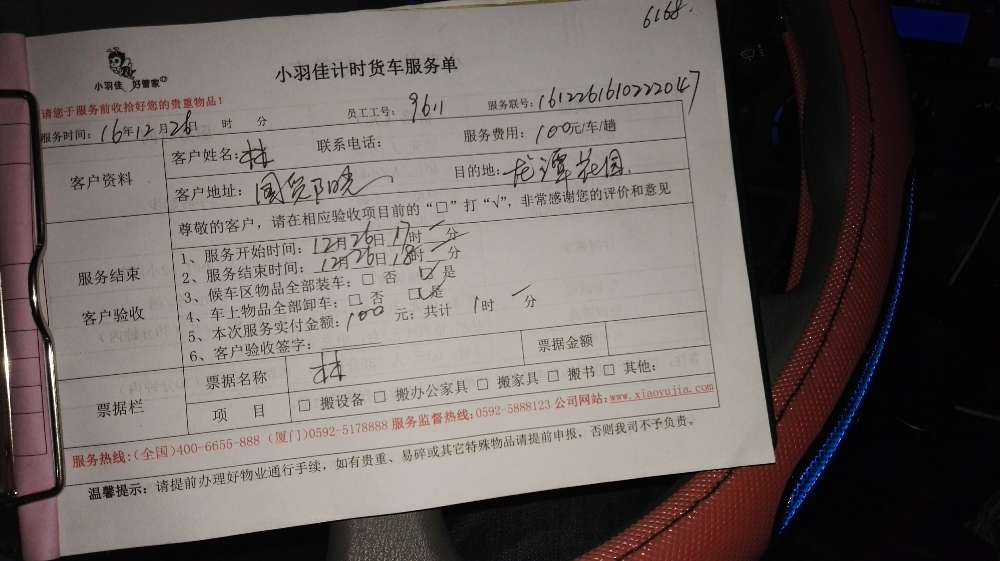 6168.
小羽佳 好管家
小羽佳计时货车服务单
请您于服务前收拾好您的贵重物品!
服务时间: 16年12月26日 时 分 员工工号: 9611 服务联号: 1612261610222047
客户资料
客户姓名: 林 联系电话: 服务费用: 100元/车/趟
客户地址: 国贸阳光 目的地: 龙潭花园
服务结束
客户验收
尊敬的客户,请在相应验收项目前的“□”打“√”,非常感谢您的评价和意见
1、服务开始时间: 12月26日 17时 一 分
2、服务结束时间: 12月26日 18时 一 分
3、候车区物品全部装车: □ 否 □ 是
4、车上物品全部卸车: □ 否 □ 是
5、本次服务实付金额: 100 元; 共计 1时 一 分
6、客户验收签字:
林
票据栏
票据名称 票据金额
项 目 □ 搬设备 □ 搬办公家具 □ 搬家具 □ 搬书 □ 其他:
服务热线:(全国)400-6655-888 (厦门)0592-5178888 服务监督热线:0592-5888123 公司网站:www.xiaoyujia.com
温馨提示: 请提前办理好物业通行手续,如有贵重、易碎或其它特殊物品请提前申报,否则我司不予负责。